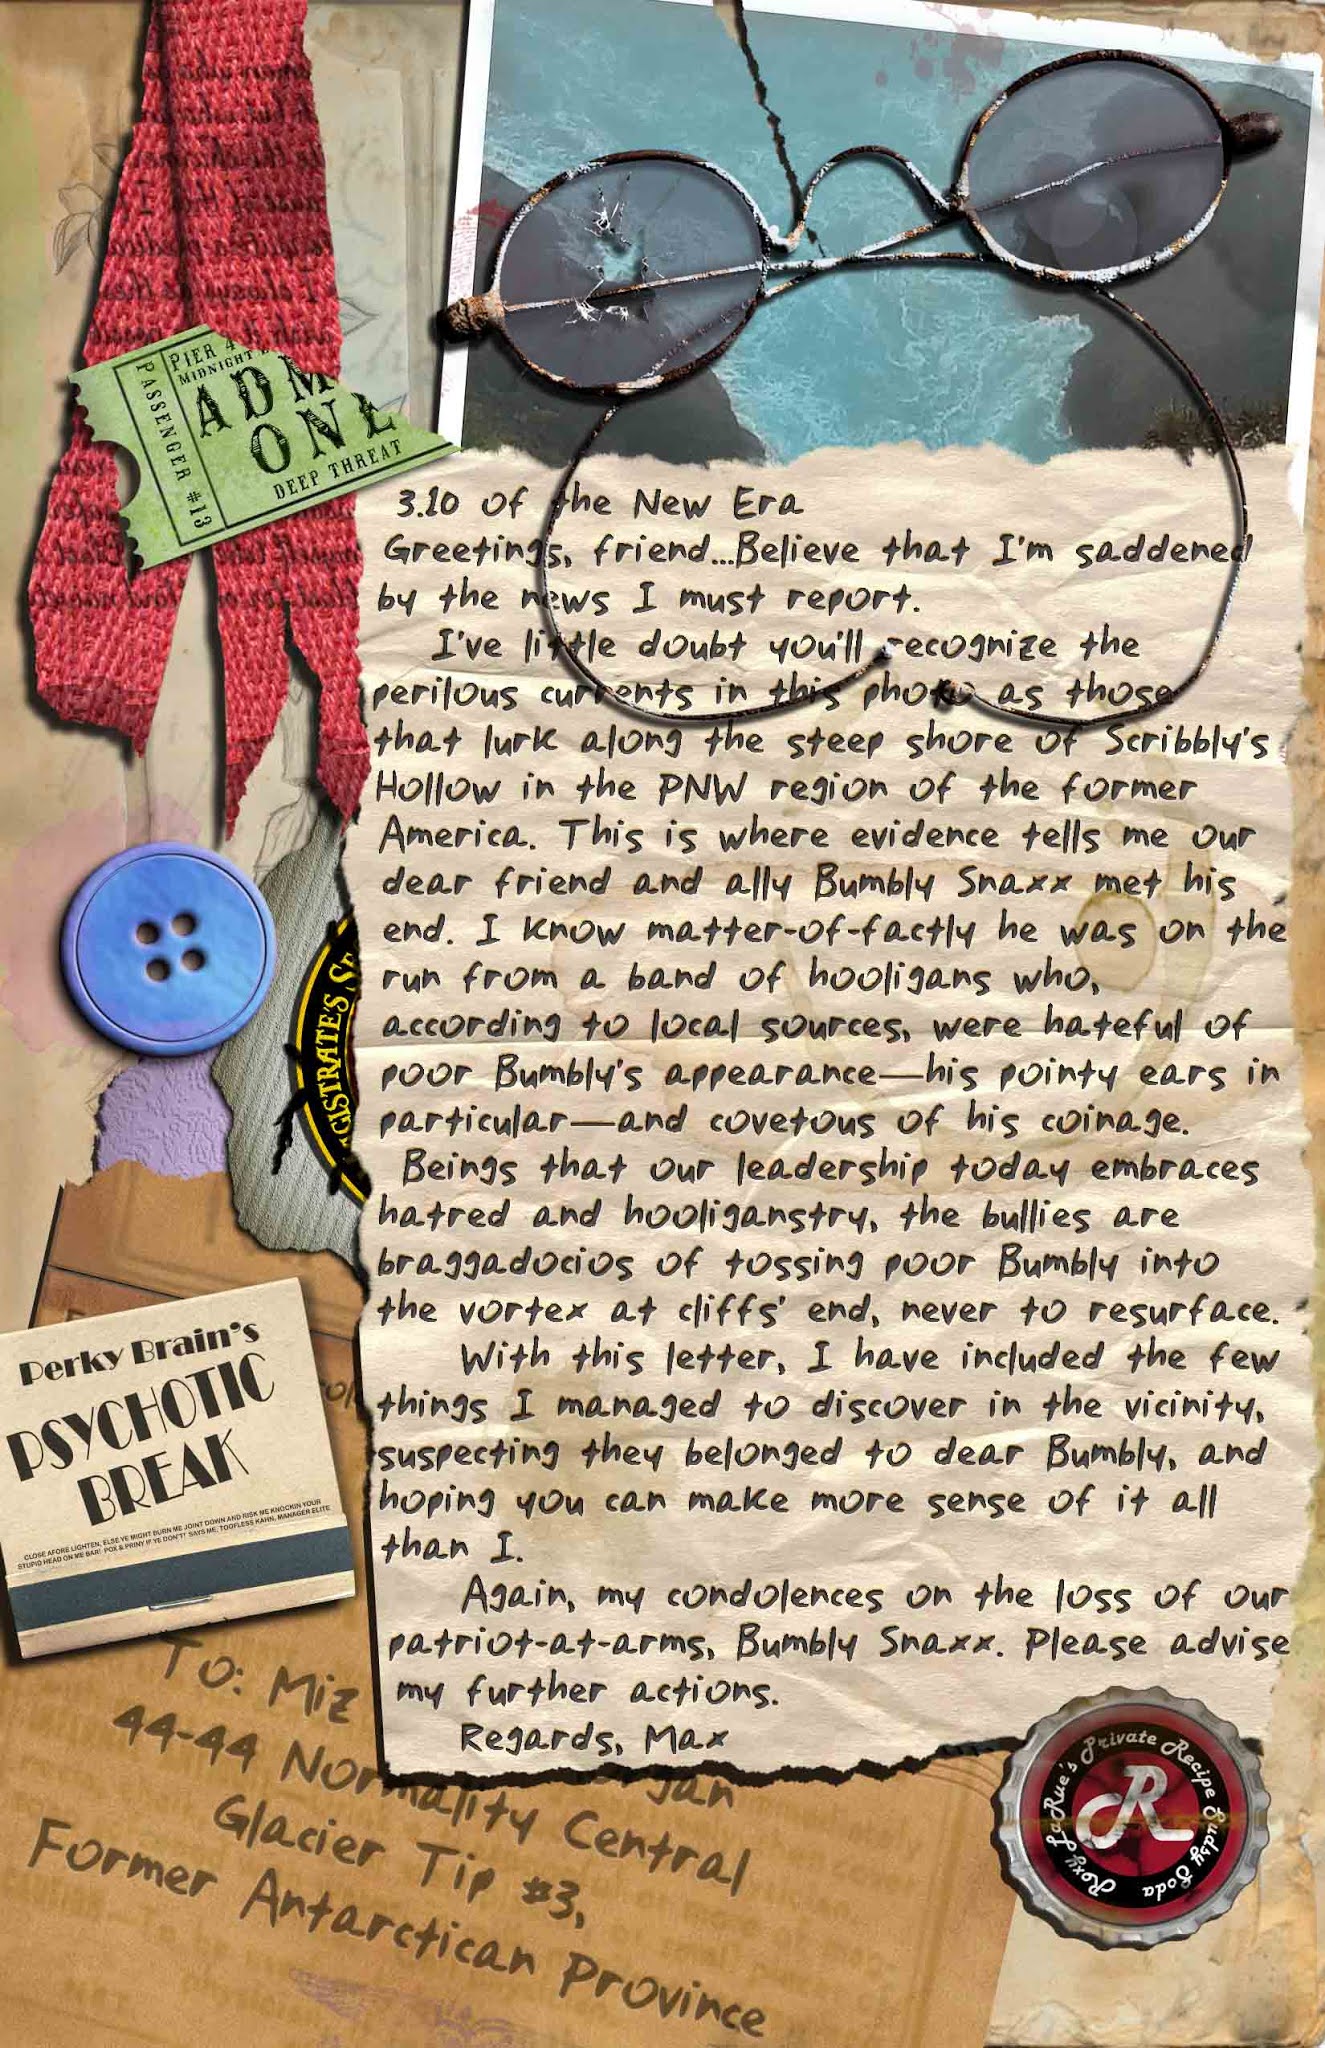 PIER 4
MIDNIGHT
PASSENGER #13
ADM
ONE
DEEP THREAT
3.10 of the New Era
Greetings, friend...Believe that I'm saddened
by the news I must report.
I've little doubt you'll recognize the
perilous currents in this photo as those
that lurk along the steep shore of Scribbly's
Hollow in the PNW region of the former
America. This is where evidence tells me our
dear friend and ally Bumbly Snaxx met his
end. I know matter-of-factly he was on the
run from a band of hooligans who,
according to local sources, were hateful of
poor Bumbly's appearance—his pointy ears in
particular—and covetous of his coinage.
Beings that our leadership today embraces
hatred and hooliganstry, the bullies are
braggadocios of tossing poor Bumbly into
the vortex at cliffs' end, never to resurface.
With this letter, I have included the few
things I managed to discover in the vicinity,
suspecting they belonged to dear Bumbly, and
hoping you can make more sense of it all
than I.
Again, my condolences on the loss of our
patriot-at-arms, Bumbly Snaxx. Please advise
my further actions.
Regards, Max
GISTRATE'S
Perky Brain's
PSYCHOTIC
BREAK
CLOSE AFORE LIGHTEN, ELSE YE MIGHT BURN ME JOINT DOWN AND RISK ME KNOCKIN YOUR
STUPID HEAD ON ME BAR! POX & PRINY IF YE DON'T! SAYS ME, TOOFLESS KAHN, MANAGER ELITE
To: Miz
44-44 Normality Central
Glacier Tip #3,
Former Antarctican Province
Roxy LaRue's Private Recipe Sudsy Soda
R